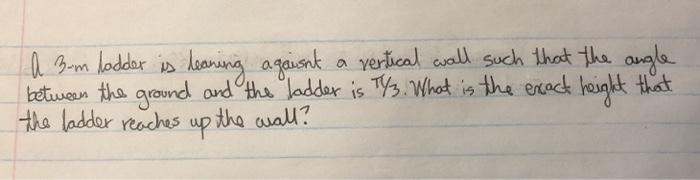 A 3-m ladder is leaning agaisnt a vertical wall such that the angle
between the ground and the ladder is π/3. What is the exact height that
the ladder reaches up the wall?